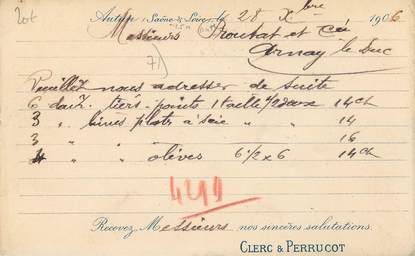 20t
Autun (Saône & Loire), le 28 Xbre 1906
Messieurs Proutat et Cie
Arnay le Duc
71
Veuillez nous adresser de suite
6 douz. tiers-points 1 taille 1/2 doux 14 c/m
3 " limes plates à scie " " 14
3 " " " 16
4 " " olives 6 1/2 x 6 14 c/m
4219
Recevez, Messieurs nos sincères salutations.
CLERC & PERRUCOT